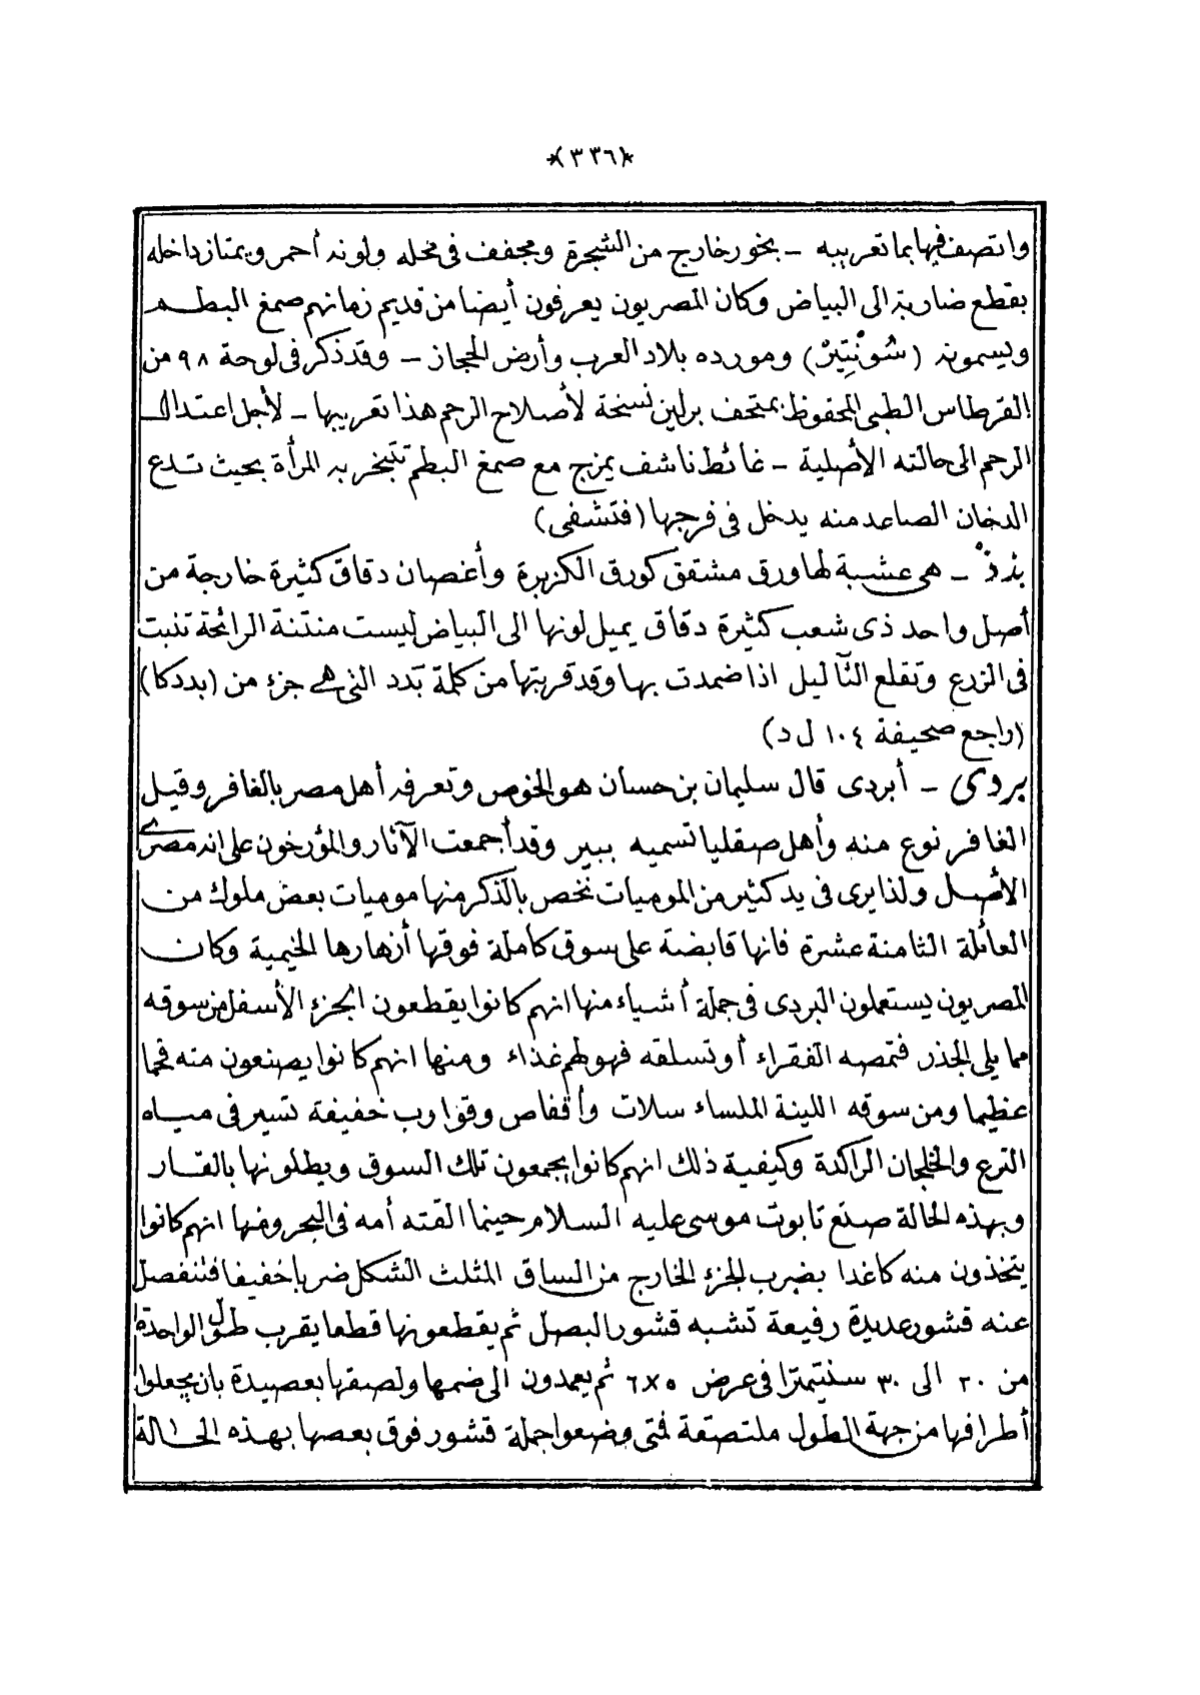 *(٣٣٦)*
واتصف فيها بما تعريبه – بخور خارج من الشجرة ومجفف فى محله ولونه أحمر ويمتاز داخله
بقطع ضاربة الى البياض وكان المصريون يعرفون أيضا من قديم زمانهم صمغ البطم
ويسمونه (شُونْتِيَرْ) ومورده بلاد العرب وأرض الحجاز – وقد ذكر فى لوحة ٩٨ من
القرطاس الطبى المحفوظ بمتحف برلين نسخة لأصلاح الرحم هذا تعريبها – لأجل اعتدال
الرحم الى حالته الأصلية – غائط ناشف يمزج مع صمغ البطم تتبخر به المرأة بحيث تدع
الدخان الصاعد منه يدخل فى فرجها (فتشفى)
بذذ – هى عشبة لها ورق مشقق كورق الكزبرة وأغصان دقاق كثيرة خارجة من
أصل واحد ذى شعب كثيرة دقاق يميل لونها الى البياض ليست منتنة الرائحة تنبت
فى الزرع وتقلع الثآليل اذا ضمدت بها وقد قربتها من كلمة بَدد التى هى جزء من (بددكا)
(راجع صحيفة ١٠٤ ل د)
بروى – أبردى قال سليمان بن حسان هو الخوص وتعرفه أهل مصر بالغافر وقيل
الغافر نوع منه وأهل صقليا تسميه ببير وقد أجمعت الآثار والمؤرخون على انه مصرى
الأصل ولذا يرى فى يد كثير من الموميات نخص بالذكر منها موميات بعض ملوك من
العائلة الثامنة عشرة فانها قابضة على سوق كاملة فوقها أزهارها الخيمية وكان
المصريون يستعملون البردى فى جملة أشياء منها انهم كانوا يقطعون الجزء الأسفل من سوقه
مما يلى الجذر فتمصه الفقراء أو تسلقه فهو لهم غذاء ومنها انهم كانوا يصنعون منه فحما
عظيما ومن سوقه اللينة الملساء سلات وأقفاص وقوارب خفيفة تسير فى مياه
الترع والخلجان الراكدة وكيفية ذلك انهم كانوا يجمعون تلك السوق ويطلونها بالقار
وبهذه الحالة صنع تابوت موسى عليه السلام حينما القته أمه فى البحر ومنها انهم كانوا
يتخذون منه كاغدا بضرب الجزء الخارج من الساق المثلث الشكل ضربا خفيفا فتنفصل
عنه قشور عديدة رفيعة تشبه قشور البصل ثم يقطعونها قطعا يقرب طول الواحدة
من ٢٠ الى ٣٠ سنتيمترا فى عرض ٥×٦ ثم يعمدون الى ضمها ولصقها بعصيدة بان يجعلوا
أطرافها من جهة الطول ملتصقة فمتى وضعوا جملة قشور فوق بعضها بهذه الحالة